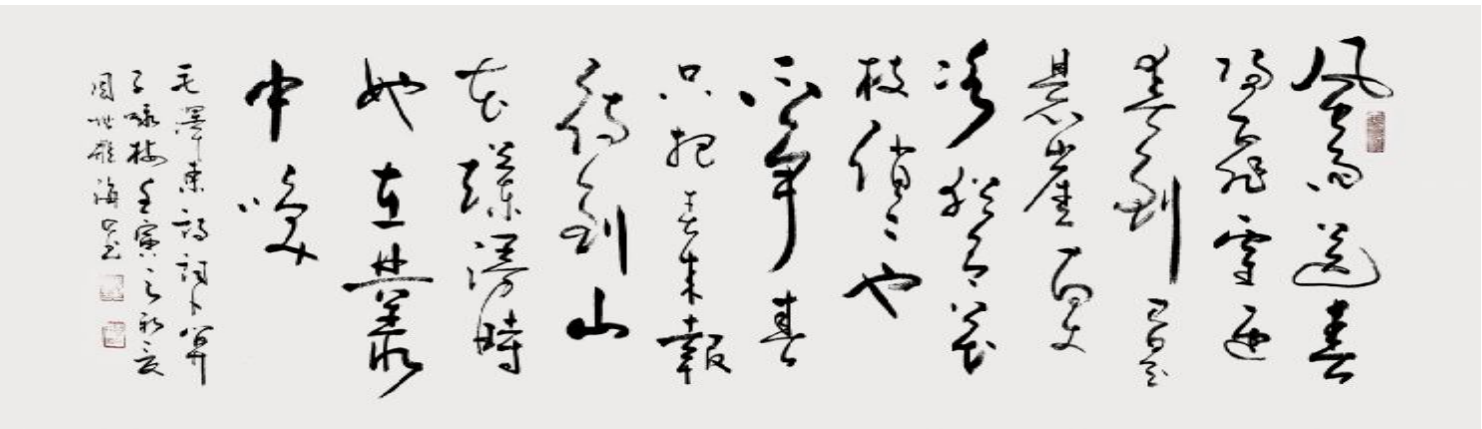 风雨送春
归飞雪迎
春到已是
悬崖百丈
冰猶有花
枝俏俏也
不争春
只把春来報
待到山
花爛漫時
她在叢
中咲
毛澤東詩詞卜算
子咏梅壬寅之初夏
周世